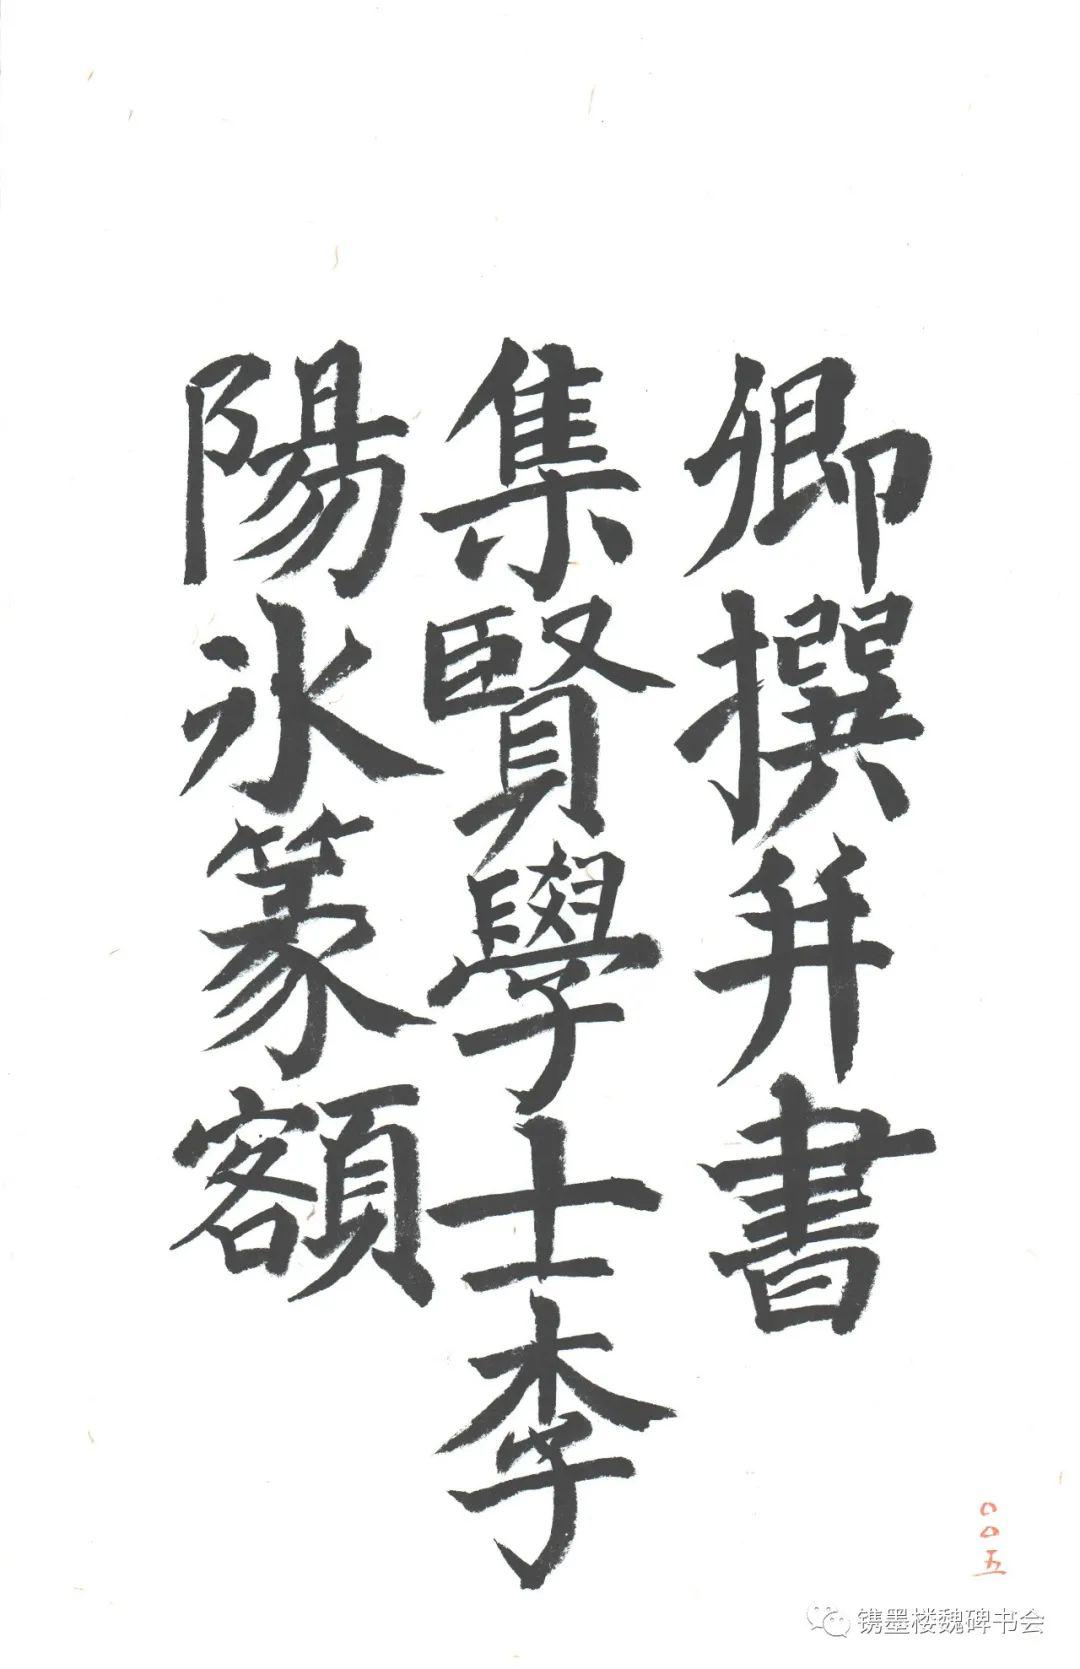 卿撰并書
集賢學士李
陽冰篆額
〇〇五
镌墨楼魏碑书会